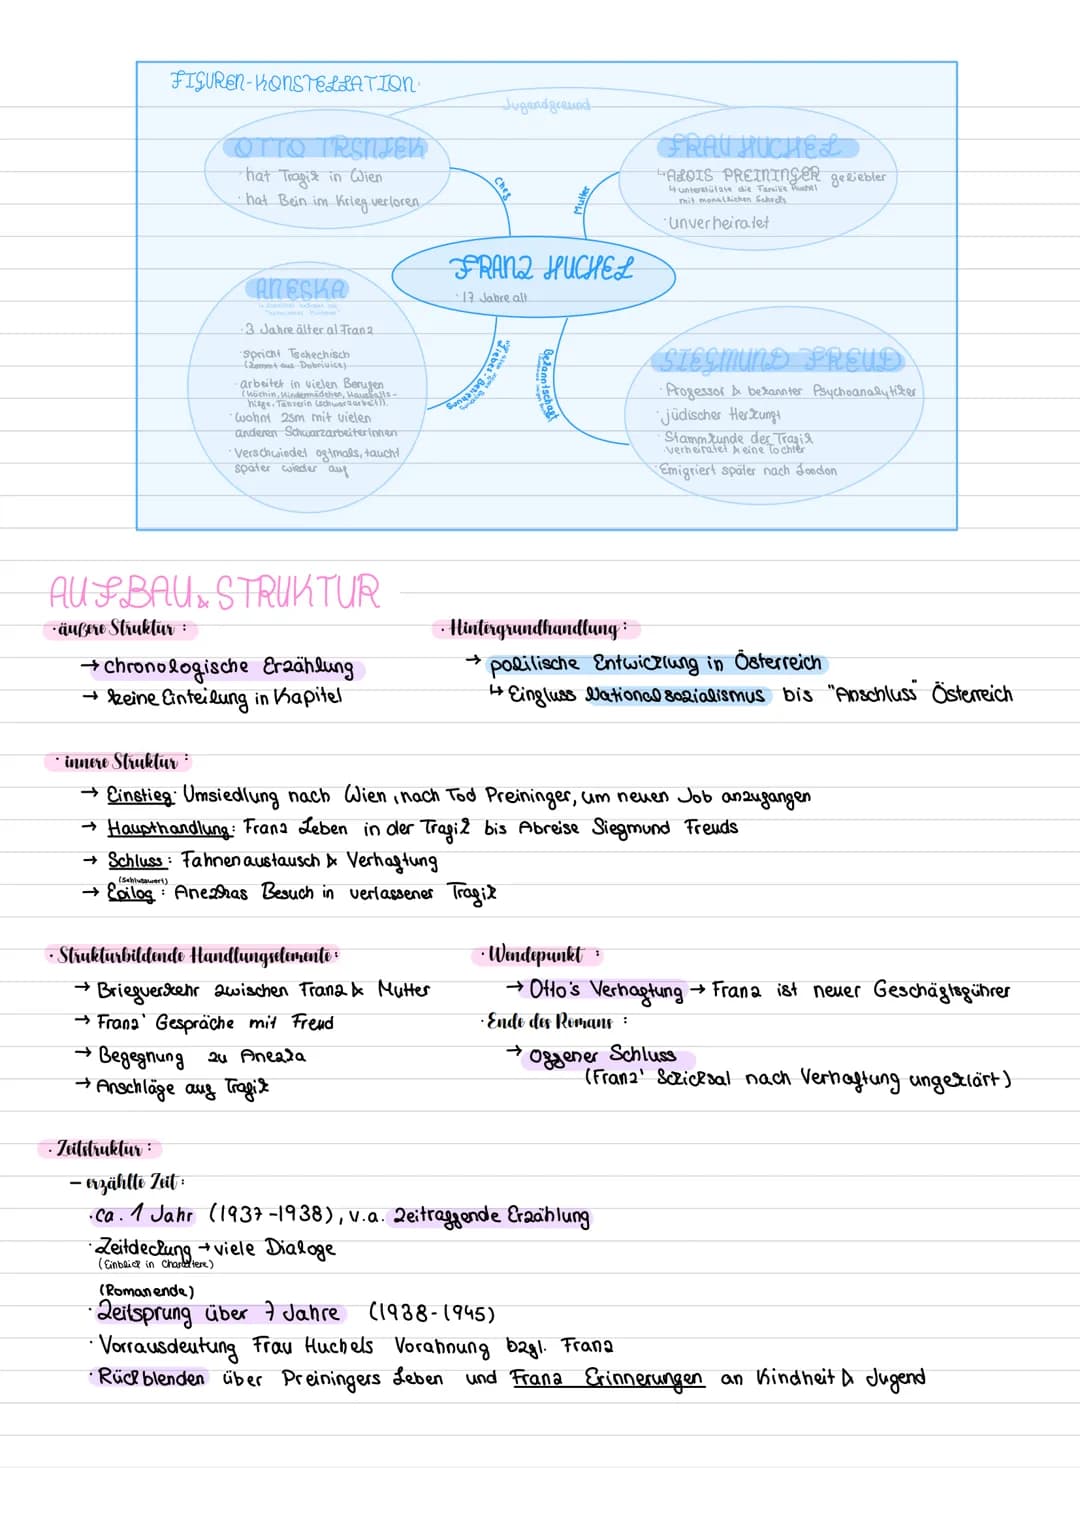 FIGUREN-KONSTELLATION
Jugendfreund
OTTO TRSNJEK
· hat Trafik in Wien
· hat Bein im Krieg verloren
Chef
Mutter
FRAU HUCHEL
↳ ALOIS PREININGER geliebter
↳ unterstützte die Familie Huchel
mit monatlichen Schecks
· unverheiratet
FRANZ HUCHEL
· 17 Jahre alt
ANESKA
· 3 Jahre älter al Franz
· spricht Tschechisch
(kommt aus Dobrivice)
· arbeitet in vielen Berufen
(Köchin, Kindermädchen, Haushalts-
hilfe, Tänzerin (schwarzarbeit)).
· wohnt zsm mit vielen
anderen SchwarzarbeiterInnen
· Verschwindet oftmals, taucht
später wieder auf
Liebes-Beziehung
Bekanntschaft
SIEGMUND FREUD
· Professor & bekannter Psychoanalytiker
· jüdischer Herkunft
· Stammkunde der Trafik
verheiratet & eine Tochter
· Emigriert später nach London
AUFBAU & STRUKTUR
· äußere Struktur :
→ chronologische Erzählung
→ keine Einteilung in Kapitel
· Hintergrundhandlung :
→ politische Entwicklung in Österreich
↳ Einfluss Nationalsozialismus bis "Anschluss" Österreich
· innere Struktur :
→ Einstieg: Umsiedlung nach Wien, nach Tod Preininger, um neuen Job anzufangen
→ Haupthandlung: Franz Leben in der Trafik bis Abreise Siegmund Freuds
→ Schluss : Fahnenaustausch & Verhaftung
(Schlusswort)
→ Epilog : Anezkas Besuch in verlassener Trafik
· Strukturbildende Handlungselemente :
→ Briefverkehr zwischen Franz & Mutter
→ Franz' Gespräche mit Freud
→ Begegnung zu Anezka
→ Anschläge auf Trafik
· Wendepunkt :
→ Otto's Verhaftung → Franz ist neuer Geschäftsführer
· Ende des Romans :
→ offener Schluss
(Franz' Schicksal nach Verhaftung ungeklärt)
· Zeitstruktur :
– erzählte Zeit :
· ca. 1 Jahr (1937-1938), v.a. zeitraffende Erzählung
· Zeitdeckung → viele Dialoge
(Einblick in Charaktere)
(Romanende)
· Zeitsprung über 7 Jahre (1938-1945)
· Vorrausdeutung Frau Huchels Vorahnung bzgl. Franz
· Rückblenden über Preiningers Leben und Franz Erinnerungen an Kindheit & Jugend